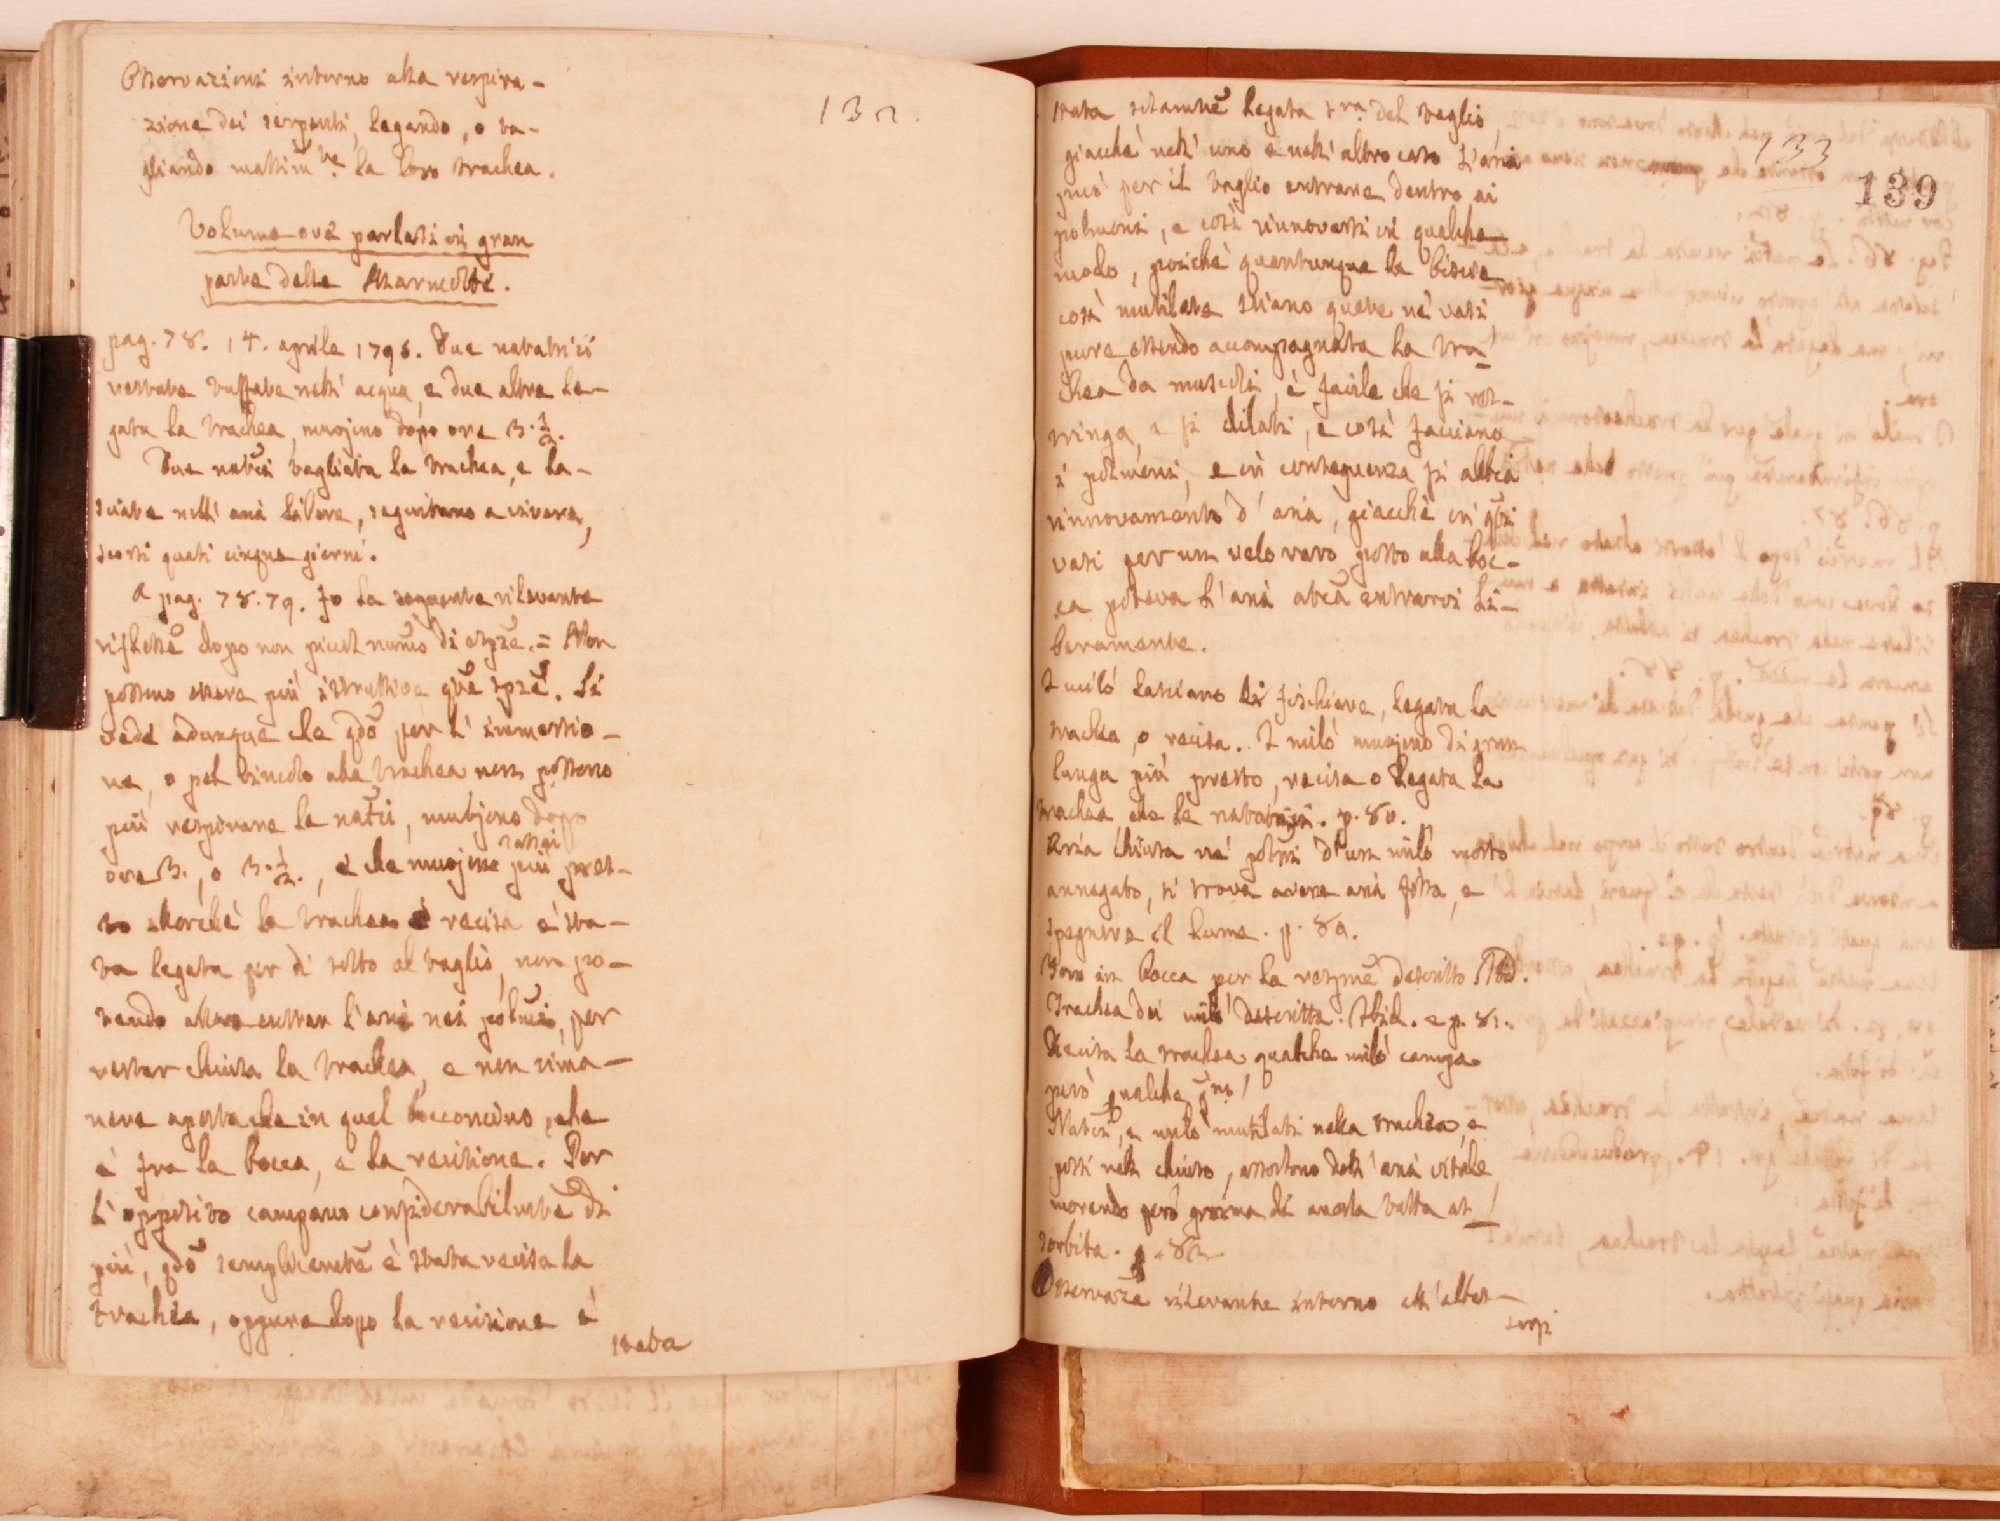 Osservazioni intorno alla respira-
zione dei serpenti, legando, o ta-
gliando massim.te la loro trachea.
132.
Volume ove parlasi in gran
parte delle Marmotte.
pag. 78. 14. aprile 1795. Due natatrici
restate tuffate nell' acqua, e due altre le-
gata la trachea, muojono dopo ore 3. 1/2.
Due natrici tagliata la trachea, e la-
sciate nell' aria libera, seguitano a vivere,
scorsi quasi cinque giorni.
A pag. 78. 79. fo la seguente rilevante
rifless.e dopo non piccol num.o di esp.ze. = Non
possono essere più istruttive q.te sp.ze. Si
vede adunque che q.do per l' immersio-
ne, o pel vincolo alla trachea non possono
più respirare le natrici, muojono dopo
ore 3., o 3. 1/2., e che muojono più pres-
assai
to allorchè la trachea è recisa e sta-
ta legata per di sotto al taglio, non po-
tendo allora entrar l'aria nei polmoni, per
restar chiusa la trachea, e non rima-
nere aperta che in quel bocconcino, che
è fra la bocca, e la recisione. Per
l' opposito campano considerabilm.te di
più, q.do semplicem.te è stata recisa la
trachea, oppure dopo la recisione è
stata
133
139
stata solam.te legata s.ra del taglio,
giacchè nell' uno e nell' altro caso l'aria
può per il taglio entrare dentro ai
polmoni, e così rinnovarsi in qualche
modo, poichè quantunque le biscie
così mutilate stiano quete ne' vasi
pure essendo accompagnata la tra-
chea da muscoli, è facile che si res-
tringa, e si dilati, e così facciano
i polmoni, e in conseguenza si abbia
rinnovamento d' aria, giacchè in q.ti
vasi per un velo raro posto alla boc-
ca poteva l' aria entrarvi li-
beramente.
I milò lasciano di fischiare, legata la
trachea, o recisa. I milò muojono di gran
lunga più presto, recisa o legata la
trachea che le natatrici. p. 80.
Aria chiusa ne' polm.ni d'un milò morto
annegato, si trova avere aria fissa, e
spegneva il lume. p. 80.
Foro in bocca per la resp.ne descritto Ibid.
Trachea dei milò descritta. Ibid. e p. 81.
Recisa la trachea qualche milò campa
però qualche g.no!
Natrici, e milò mutilati nella trachea, e
posti nel chiuso, assorbono dell' aria vitale
morendo però prima di averla tutta as-
sorbita. p. 82.
Osservaz.e rilevante intorno all' assor-